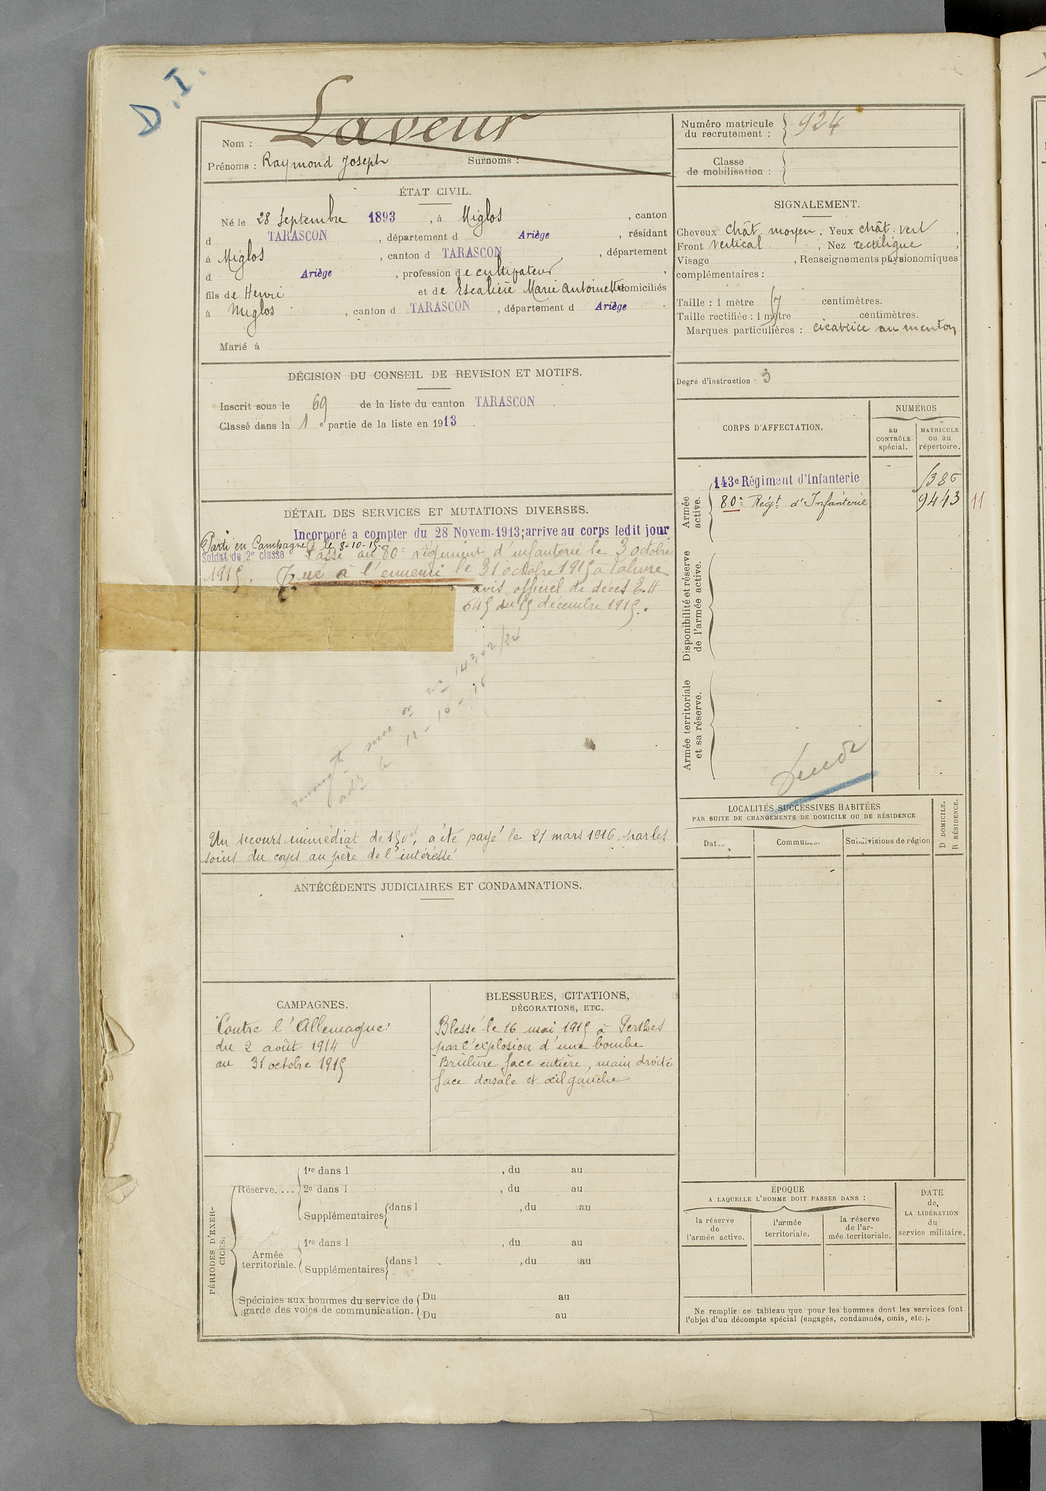 D.I.
Laveur
Nom :
Prénoms : Raymond Joseph Surnoms :
ÉTAT CIVIL.
Né le 28 Septembre 1893, à Miglos, canton
d TARASCON, département d Ariège, résidant
à Miglos, canton d TARASCON, département
d Ariège, profession de cultivateur,
fils de Henri et de Escalière Marie Antoinette domiciliés
à Miglos, canton d TARASCON, département d Ariège.
Marié à
DÉCISION DU CONSEIL DE REVISION ET MOTIFS.
Inscrit sous le 69 de la liste du canton TARASCON
Classé dans la 1e partie de la liste en 1913.
DÉTAIL DES SERVICES ET MUTATIONS DIVERSES.
Incorporé a compter du 28 Novem. 1913; arrive au corps ledit jour
Parti en Campagne le 8-10-15
Soldat de 2e classe Passé au 80e régiment d'infanterie le 3 octobre
1915. Tué à l'ennemi le 31 octobre 1915 à
avis officiel de décès
du 15 décembre 1915.
Un secours immédiat de 150f, a été payé le 21 mars 1916, par les
soins du corps au père de l'intéressé
ANTÉCÉDENTS JUDICIAIRES ET CONDAMNATIONS.
CAMPAGNES.
Contre l'Allemagne
du 2 août 1914
au 31 octobre 1915
BLESSURES, CITATIONS,
DÉCORATIONS, ETC.
Blessé le 16 mai 1915 à Perthes
par l'explosion d'une bombe
Brûlure face entière, main droite
face dorsale et œil gauche
PÉRIODES D'EXERCICES.
Réserve....
1re dans l , du au
2e dans l , du au
Supplémentaires dans l , du au
Armée
territoriale.
1re dans l , du au
Supplémentaires dans l , du au
Spéciales aux hommes du service de
garde des voies de communication.
Du au
Du au
Numéro matricule
du recrutement : 924
Classe
de mobilisation :
SIGNALEMENT.
Cheveux chât. moyen. Yeux chât. vert,
Front vertical ; Nez rectiligne,
Visage , Renseignements physionomiques
complémentaires :
Taille : 1 mètre 67 centimètres.
Taille rectifiée : 1 mètre centimètres.
Marques particulières : cicatrice au menton
Degré d'instruction : 3
CORPS D'AFFECTATION.
NUMÉROS
au
CONTRÔLE
spécial.
MATRICULE
ou au
répertoire.
Armée
active.
143e Régiment d'Infanterie
80e Régt. d'Infanterie 9443 11
Disponibilité et réserve
de l'armée active.
Armée territoriale
et sa réserve.
LOCALITÉS SUCCESSIVES HABITÉES
PAR SUITE DE CHANGEMENTS DE DOMICILE OU DE RÉSIDENCE
Dat... Commu... Subdivisions de région
D DOMICILE.
R RÉSIDENCE.
ÉPOQUE
A LAQUELLE L'HOMME DOIT PASSER DANS :
la réserve
de
l'armée active.
l'armée
territoriale.
la réserve
de l'ar-
mée territoriale.
DATE
de
LA LIBÉRATION
du
service militaire.
Ne remplir ce tableau que pour les hommes dont les services font
l'objet d'un décompte spécial (engagés, condamnés, omis, etc.).